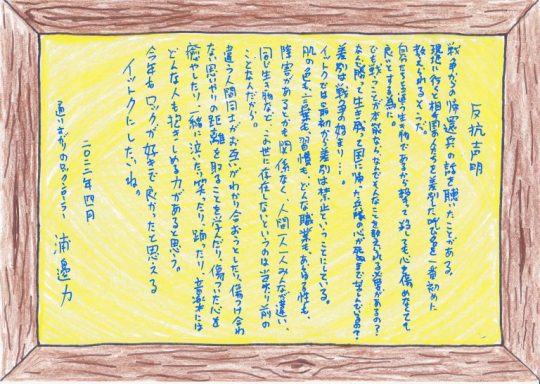 反抗声明
戦争からの帰還兵の話を聴いたことがある。
現地に行くと相手国の人たちを差別した呼び名を一番初めに
教えられるそうだ。
自分たちとは違う生き物であるから殺っても殺しても心を傷めなくても
良いとする為に。
でも戦うことが本能なら、なんでそんなことを教えられる必要があるの?
なんで勝って生き残って国に帰った兵隊の心が死ぬまで苦しんでいるの?
差別は戦争の始まり…。
イットクでは最初から差別は禁止ということにしている。
肌の色も、言葉も、習慣も、どんな職業も、あらゆる性も、
障害があるとかも関係なく、人間一人一人みんなが違い、
同じ生き物など、この世に存在しないというのは当たり前の
ことなんだから。
違う人間同士がお互いがわかり合おうとしたり、傷つけ合わ
ない思いやりの距離を取ることを学んだり、傷ついた心を
癒やしたり、一緒に泣いたり笑ったり、踊ったり、音楽には
どんな人も抱きしめる力があると思う。
今年もロックが好きで良かったと思える
イットクにしたいね。
二〇二二年 四月
通りすがりのロックンローラー 浦邉 力